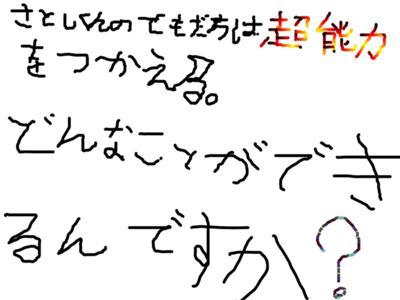 さとしくんのともだちは超能力
をつかえる。
どんなことができ
るんですか?